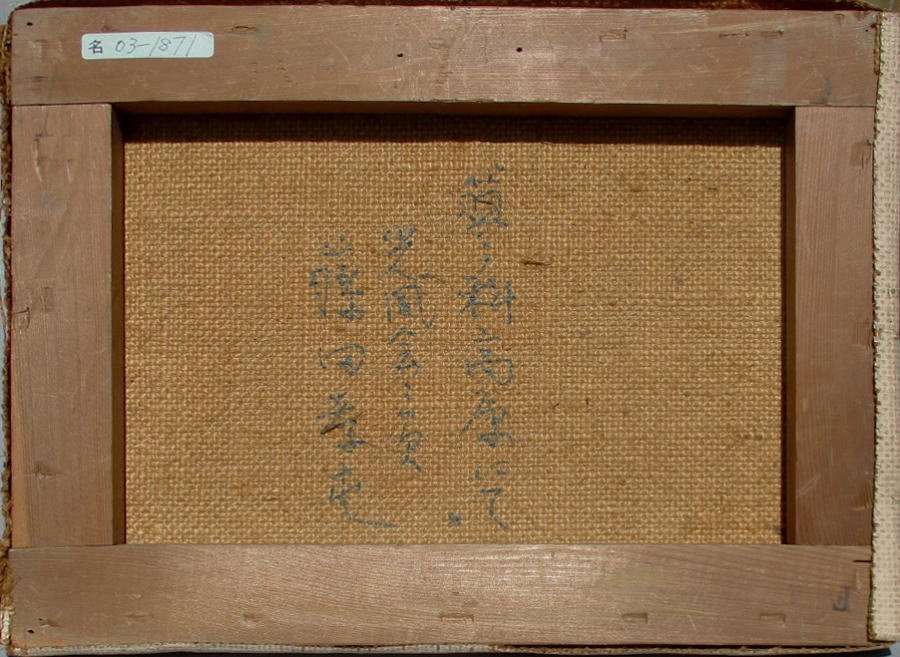 名 03-1871
蓼科高原にて
光風会々員
藤田